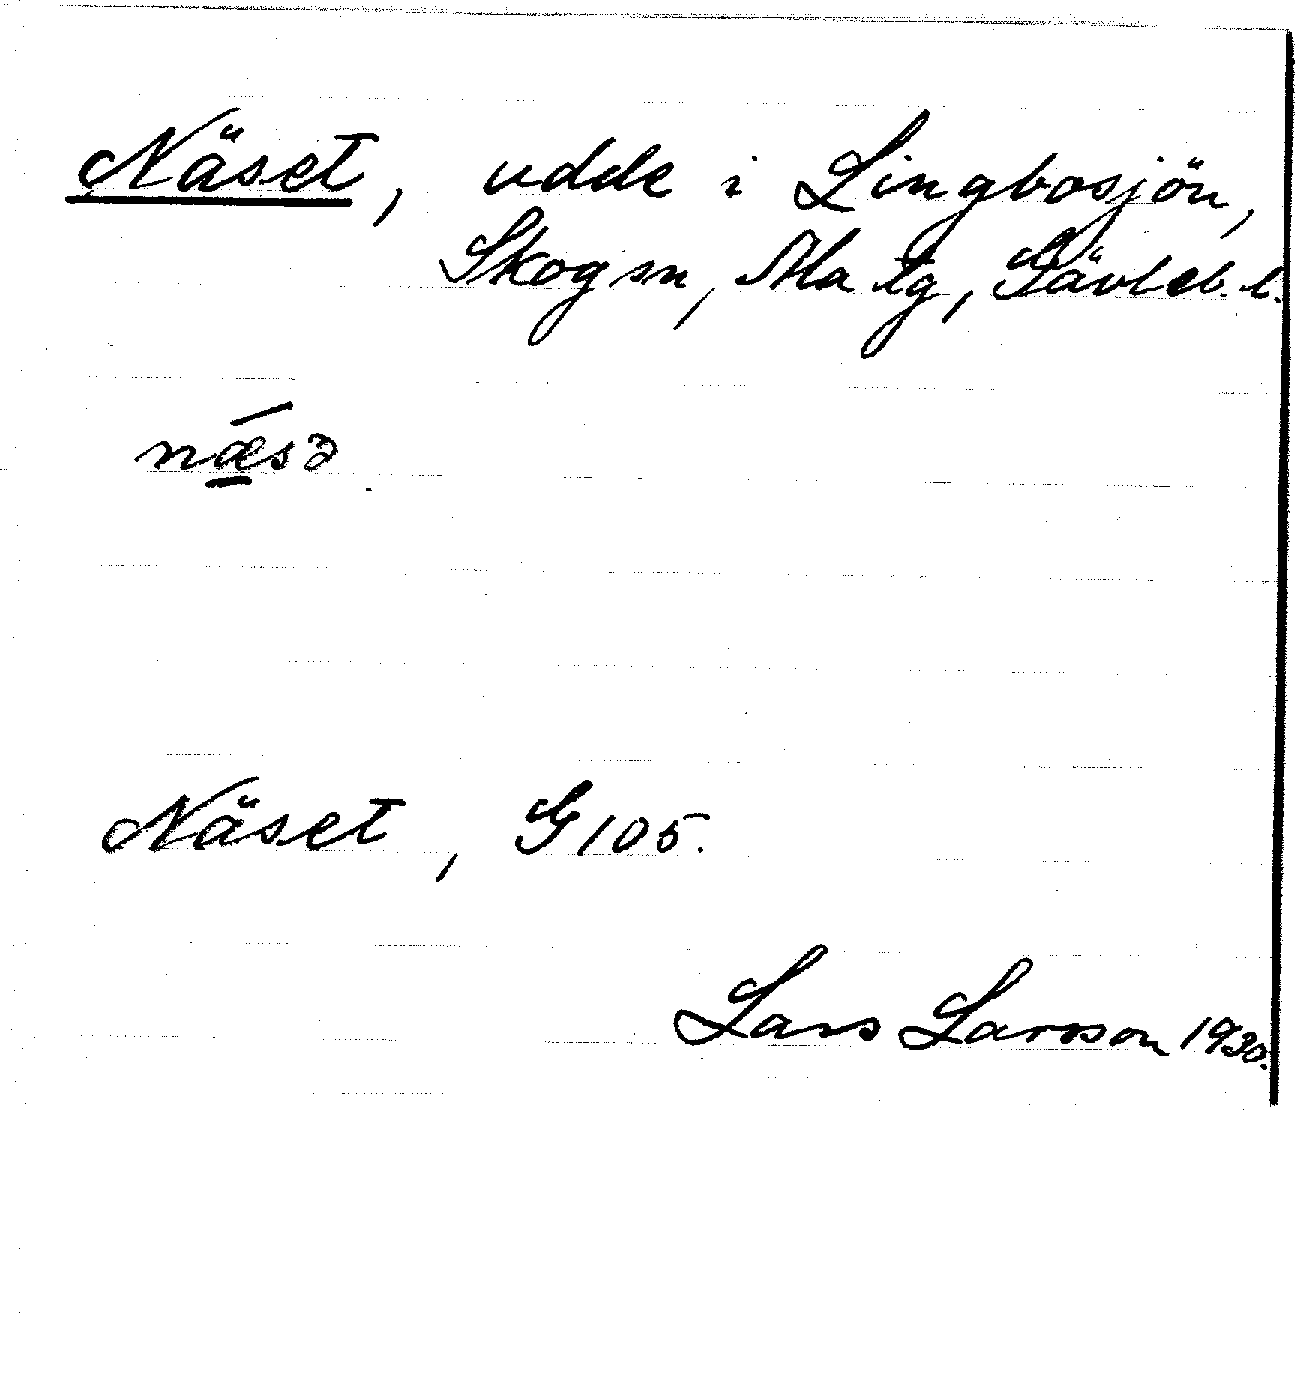 Näset, udde i Lingbosjön,
Skog sn, Ala tg, Gävleb. l.
nǽ̲sə
Näset, G 105.
Lars Larsson 1930.